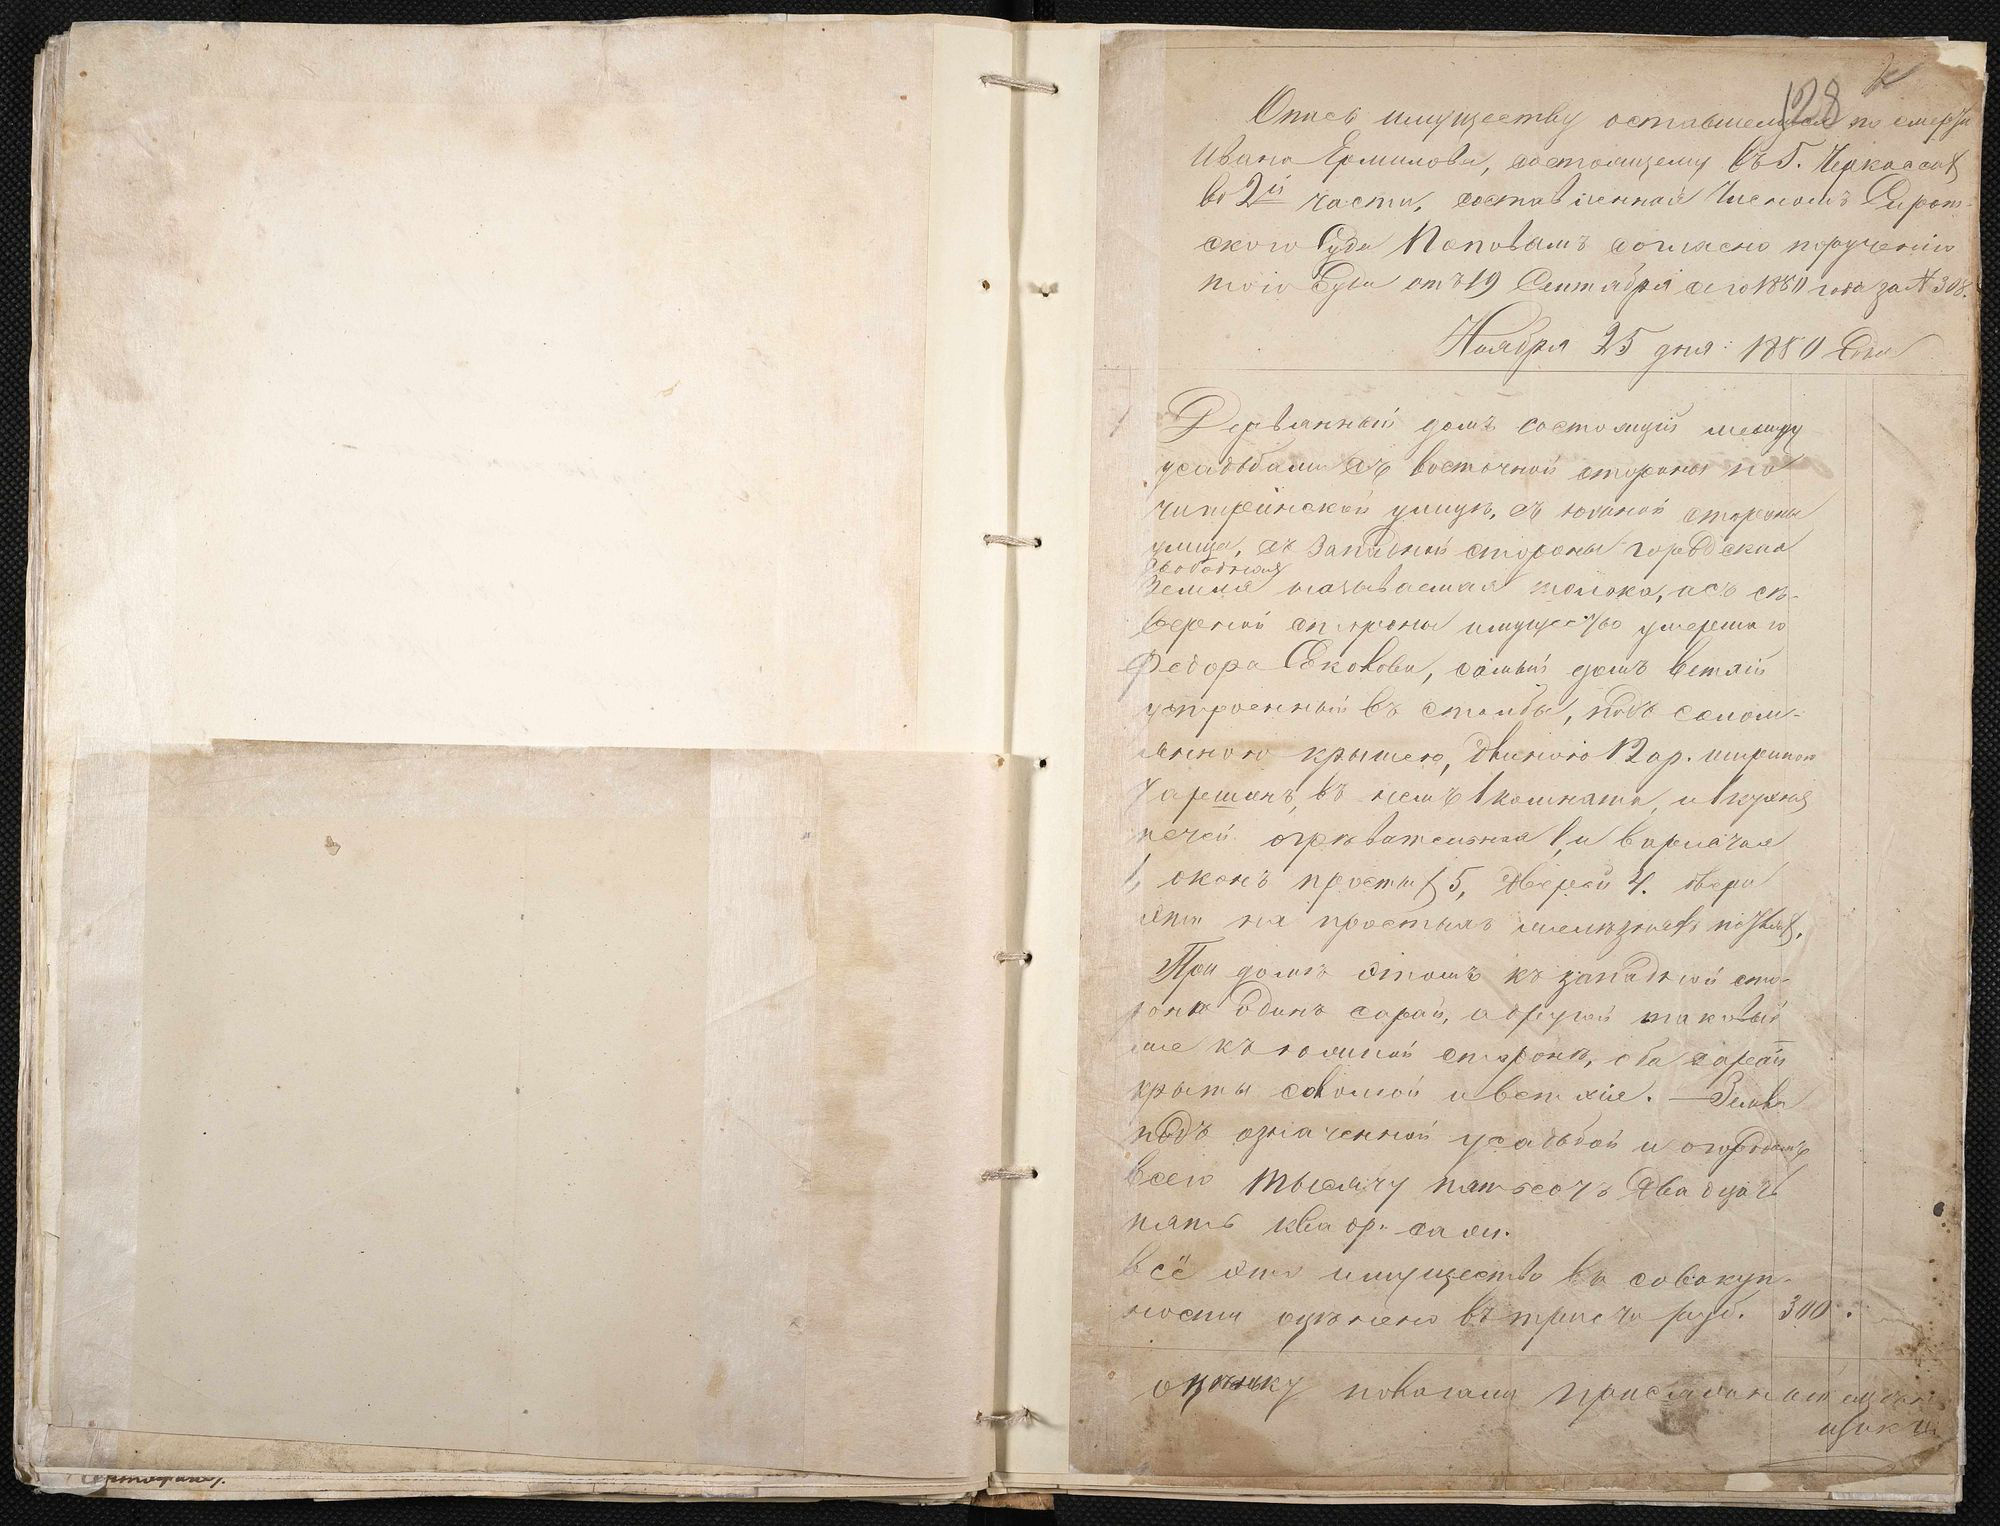 128
Опись имуществу оставшемуся по смерти
Ивана Ермилова, состоящему въ г. Черкассахъ
во 2й части, составленная Членомъ Сирот-
скаго Суда Поповымъ согласно порученію
того Суда отъ 19 Сентября сего 1880 года за № 308.
Ноября 25 дня 1880 года
Деревянный домъ состоящій между
усадьбами съ восточной стороны по
улицѣ, съ южной стороны
улица, съ западной стороны городская
свободная
земля называемая толока, а съ сѣ-
верной стороны имущество умершаго
Федора, самый домъ ветхій
устроенный въ столбы, подъ солом-
янною крышею, длиною 12 ар. шириною
7 аршинъ, въ немъ 1 комната, и 1 кухня
печей огрѣвательная 1, и варистая
1, оконъ простыхъ 5, дверей 4. двери
эти на простыхъ желѣзныхъ
При домѣ этомъ къ западной сто-
ронѣ одинъ сарай, а другой таковый
же къ южной сторонѣ, оба сараи
крыты соломой и ветхіе. — Земли
подъ означенной усадьбой и огородомъ
всего тысячу пятьсотъ двадцать
пять квадр. саж.
всё это имущество въ совокуп-
ности оцѣнено въ триста руб. 300
оцѣнку показали присяжные оцѣн-
щики